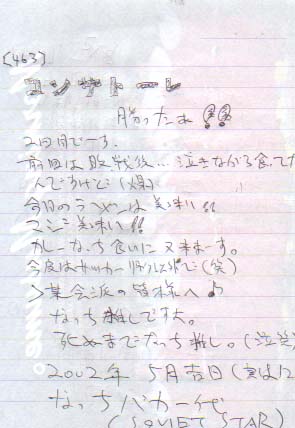 [463]
コンサドーレ
勝ったぁ!!
2回目でーす。
前回は敗戦後…泣きながら食べてた
んですけど(爆)
今日のラーメンは美味い!!
マジ美味い!!
カレーなっち食いに又来まーす。
今度はサッカー
>某会派の皆様へ♪
なっち推しですた。
死ぬまでなっち推し。(泣笑)
2002年 5月吉日(実は12
なっちバカ一代
(SOVIET STAR)